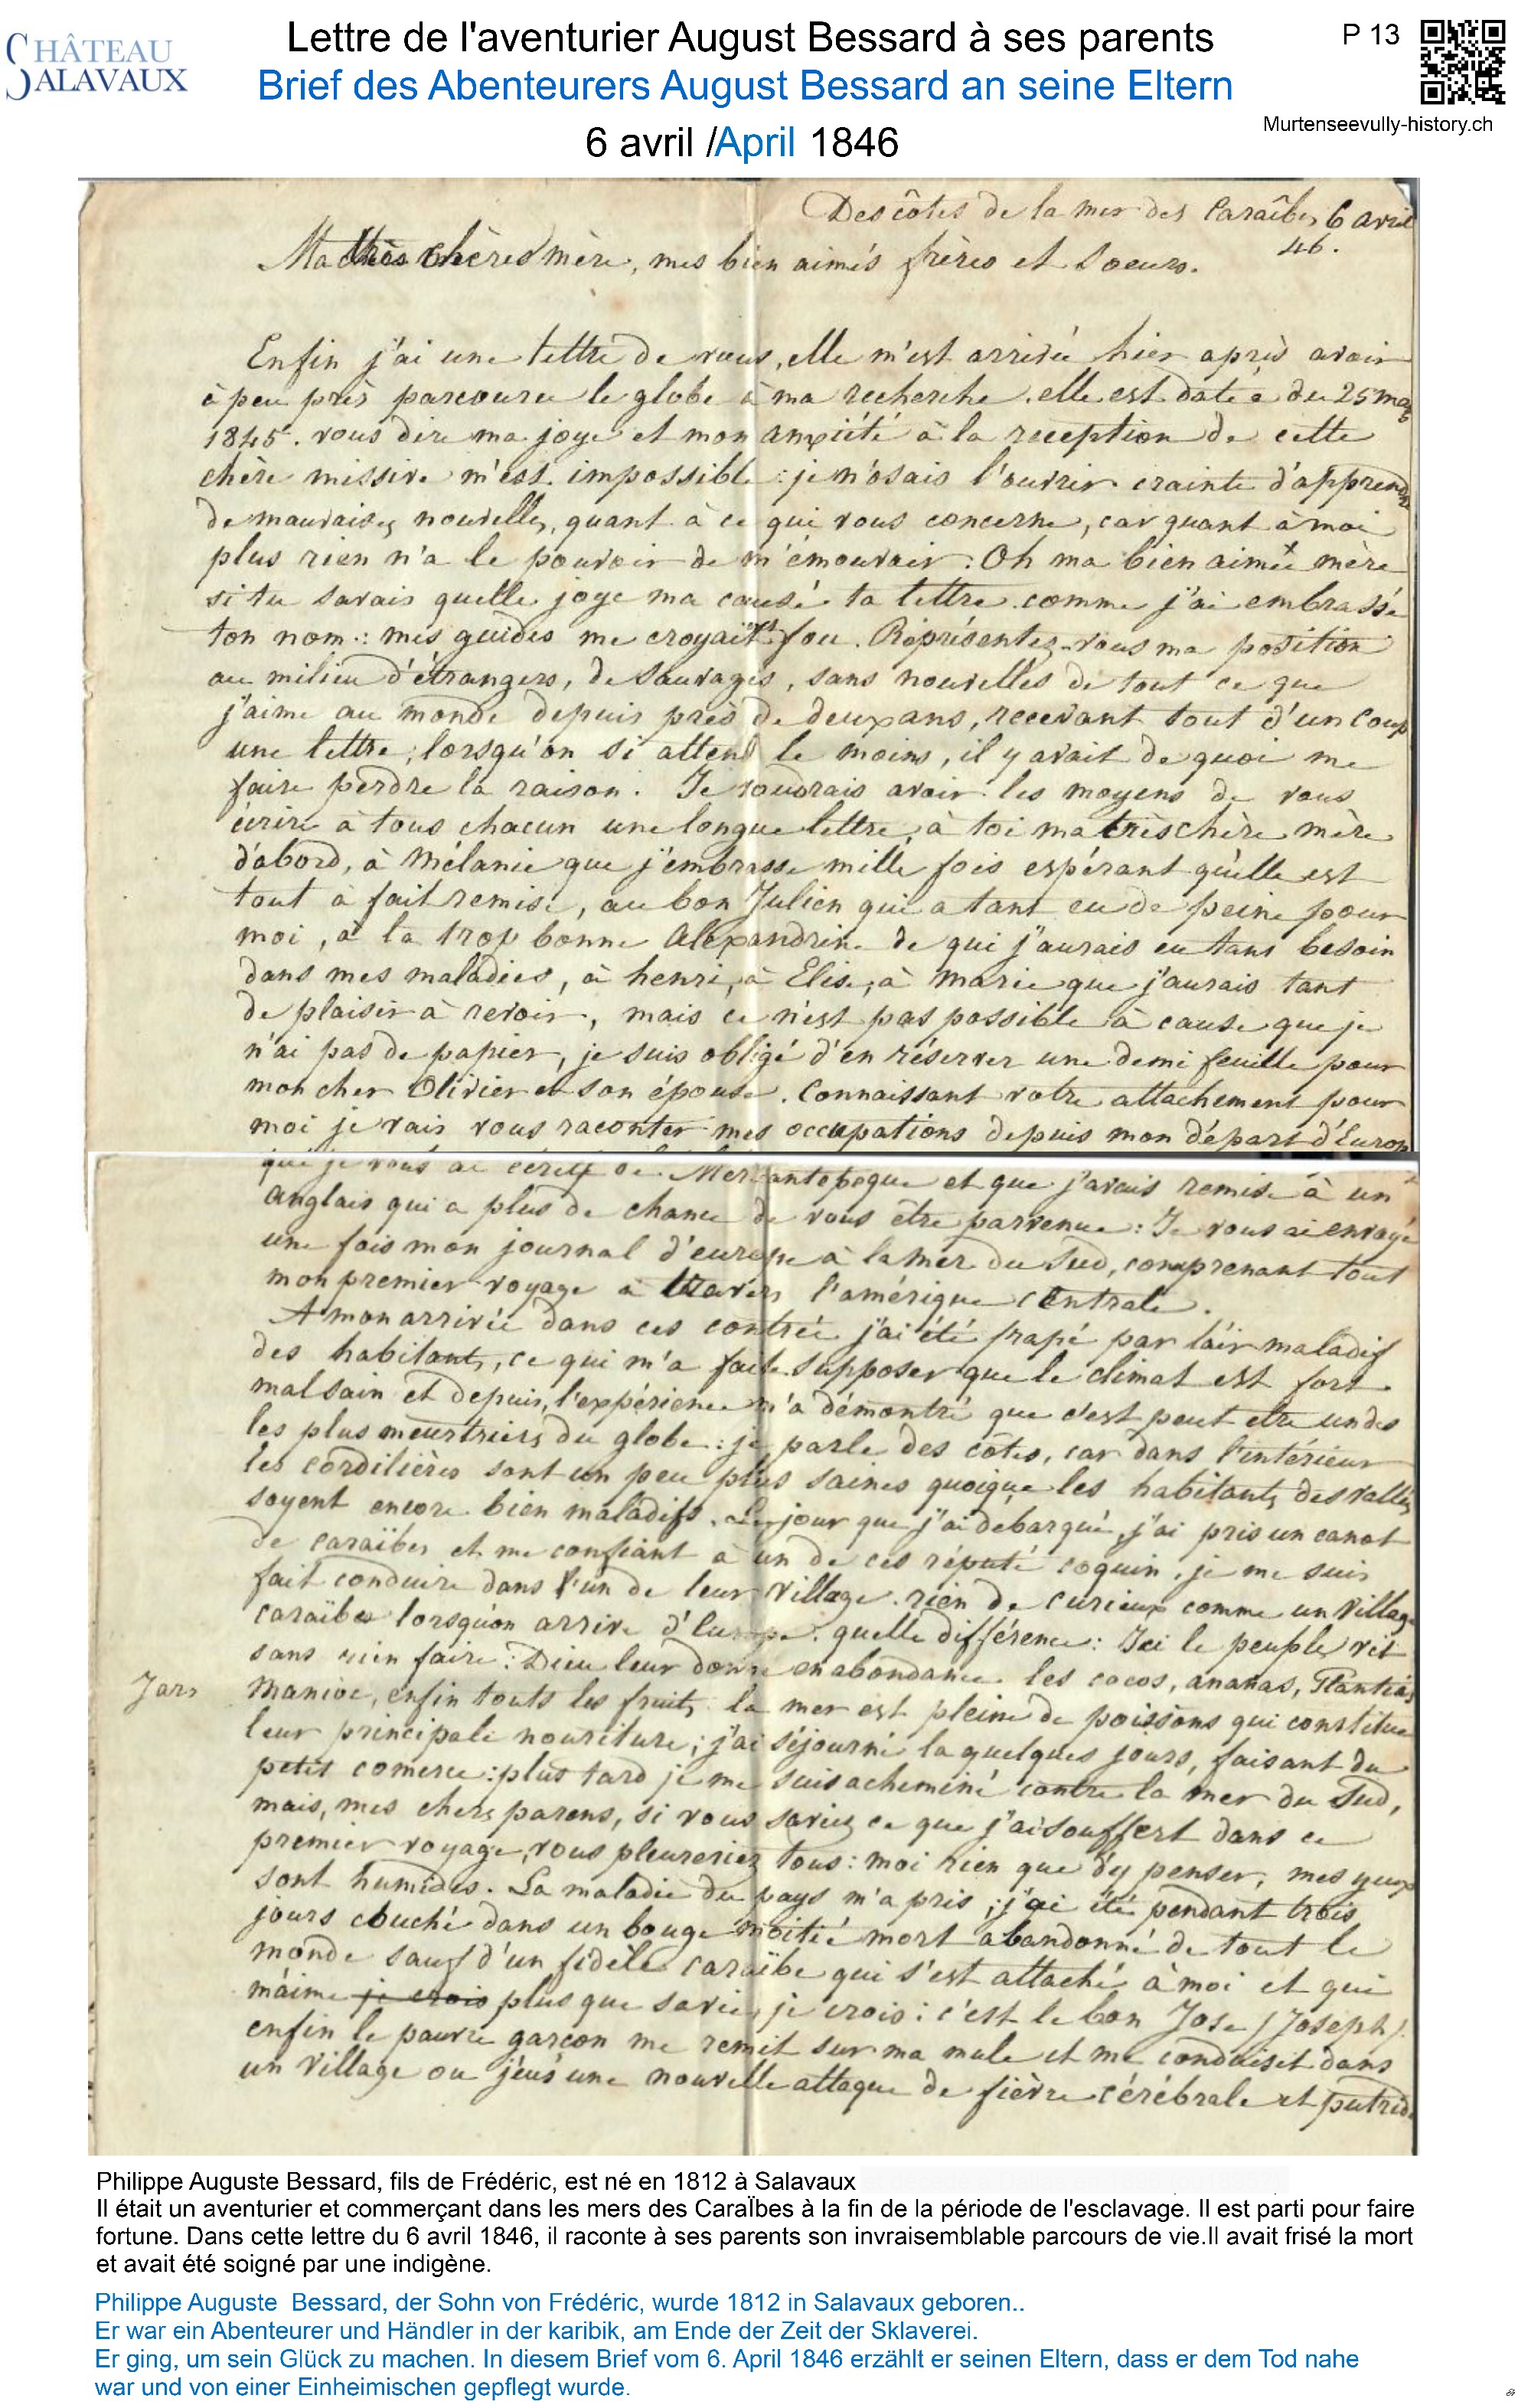 CHÂTEAU
SALAVAUX
Lettre de l'aventurier August Bessard à ses parents
Brief des Abenteurers August Bessard an seine Eltern
6 avril /April 1846
P 13
Murtenseevully-history.ch
Des côtes de la mer des Caraîbes 6 avril
46.
Ma très chères mère, mes bien aimés frères et soeurs.
Enfin j'ai une lettre de vous, elle m'est arrivée hier après avoir
à peu près parcouru le globe à ma recherche. elle est datée du 25 mars
1845. vous dire ma joye et mon anxiété à la reception de cette
chère missive m'est impossible : je n'osais l'ouvrir crainte d'apprendre
de mauvaises nouvelles, quant à ce qui vous concerne, car quant à moi
plus rien n'a le pouvoir de m'émouvoir : Oh ma bien aimée mère
si tu savais quelle joye ma causé ta lettre comme j'ai embrassé
ton nom : mes guides me croyaient fou. Représentez-vous ma position
au milieu d'étrangers, de sauvages, sans nouvelles de tout ce que
j'aime au monde depuis près de deux ans, recevant tout d'un coup
une lettre, lorsqu'on si attend le moins, il y avait de quoi me
faire perdre la raison. Je voudrais avoir les moyens de vous
écrire à tous chacun une longue lettre, à toi ma très chère mère
d'abord, à Mélanie que j'embrasse mille fois espérant qu'elle est
tout à fait remise, au bon Julien qui a tant eu de peine pour
moi, à la trop bonne Alexandrine de qui j'aurais eu tans besoin
dans mes maladies, à henri, à Elise, à Marie que j'aurais tant
de plaisir à revoir, mais ce n'est pas possible à cause que je
n'ai pas de papier, je suis obligé d'en réserver une demi feuille pour
mon cher Olivier et son épouse. Connaissant votre attachement pour
moi je vais vous raconter mes occupations depuis mon départ d'Europe
que je vous ai écrite de et que j'avais remise à un
anglais qui a plus de chance de vous être parvenue : Je vous ai envoyé
une fois mon journal d'europe à la mer du Sud, comprenant tout
mon premier voyage à travers l'amérique centrale.
A mon arrivée dans ces contrée j'ai été frapé par l'air maladif
des habitants, ce qui m'a fait supposer que le climat est fort
malsain et depuis, l'expérience m'a démontré que c'est peut etre un des
les plus meurtriers du globe : je parle des côtes, car dans l'intérieur
les cordilières sont un peu plus saines quoique les habitants des vallées
soyent encore bien maladifs. Le jour que j'ai debarqué, j'ai pris un canot
de caraïbes et me confiant à un de ces réputé coquin, je me suis
fait conduire dans l'un de leur village. rien de curieux comme un village
caraïbes lorsqu'on arrive d'Europe. quelle différence : Ici le peuple vit
sans rien faire : Dieu leur donne en abondance les cocos, ananas, Plantins
Manioc, enfin touts les fruits, la mer est pleine de poissons qui constitue
leur principale nouriture ; j'ai séjourné la quelques jours, faisant du
petit comerce : plus tard je me suis acheminé contre la mer du Sud,
mais, mes chers parens, si vous saviez ce que j'ai souffert dans ce
premier voyage, vous pleureriez tous : moi rien que d'y penser, mes yeux
sont humides. La maladie du pays m'a pris ; j'ai été pendant trois
jours couché dans un bouge moitié mort abandonné de tout le
monde sauf d'un fidèle caraïbe qui s'est attaché à moi et qui
m'aime je crois plus que sa vie, je crois : c'est le bon Jose (Joseph).
enfin le pauvre garçon me remit sur ma mule et me conduisit dans
un village ou j'eus une nouvelle attaque de fièvre cérébrale et putride
Philippe Auguste Bessard, fils de Frédéric, est né en 1812 à Salavaux
Il était un aventurier et commerçant dans les mers des CaraÏbes à la fin de la période de l'esclavage. Il est parti pour faire
fortune. Dans cette lettre du 6 avril 1846, il raconte à ses parents son invraisemblable parcours de vie.Il avait frisé la mort
et avait été soigné par une indigène.
Philippe Auguste  Bessard, der Sohn von Frédéric, wurde 1812 in Salavaux geboren..
Er war ein Abenteurer und Händler in der karibik, am Ende der Zeit der Sklaverei.
Er ging, um sein Glück zu machen. In diesem Brief vom 6. April 1846 erzählt er seinen Eltern, dass er dem Tod nahe
war und von einer Einheimischen gepflegt wurde.